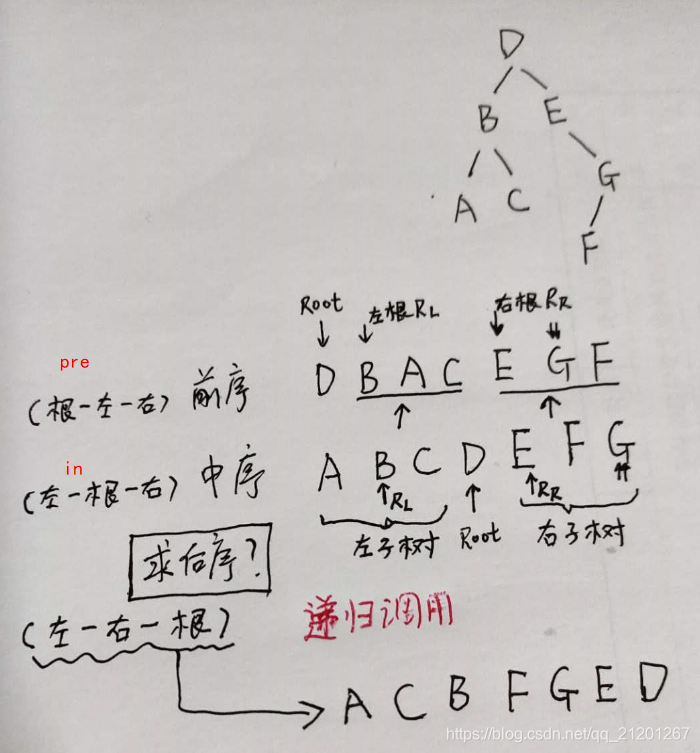 D
B E
A C G
F
Root 左根RL 右根RR
pre
(根-左-右) 前序 D B A C E G F
in
(左-根-右) 中序 A B C D E F G
RL RR
左子树 Root 右子树
求后序?
(左-右-根) 递归调用
A C B F G E D
https://blog.csdn.net/qq_21201267